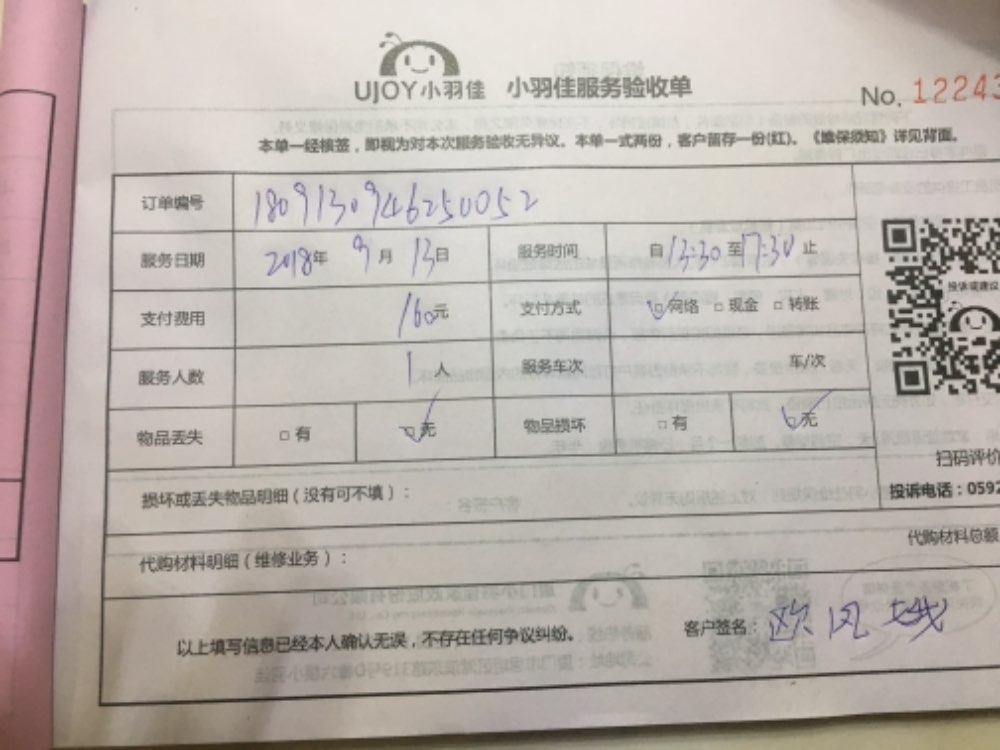 UJOY小羽佳 小羽佳服务验收单
No. 12243
本单一经核签，即视为对本次服务验收无异议。本单一式两份，客户留存一份(红)。《维保须知》详见背面。
订单编号 1809130946250052
服务日期 2018年 9月 13日 服务时间 自13:30至17:30止
支付费用 160元 支付方式 ☑网络 □现金 □转账
投诉或建议
服务人数 1人 服务车次 车/次
物品丢失 □有 ☑无 物品损坏 □有 ☑无
扫码评价
损坏或丢失物品明细（没有可不填）：
投诉电话：0592
代购材料明细（维修业务）： 代购材料总额
以上填写信息已经本人确认无误，不存在任何争议纠纷。 客户签名：欧风